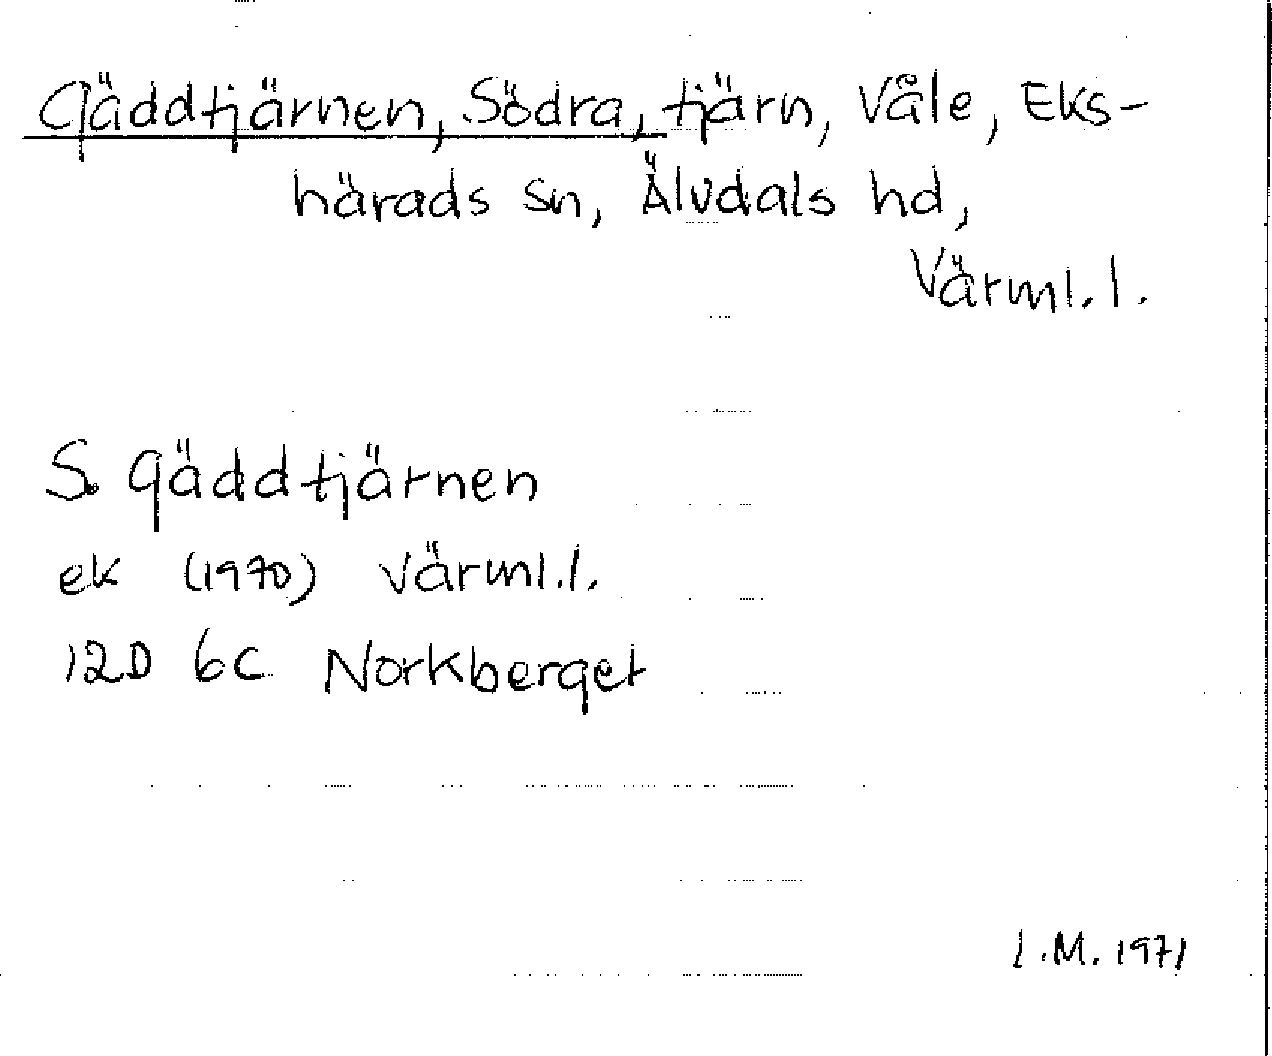 Gäddtjärnen, Södra, tjärn, Våle, Eks-
härads sn, Älvdals hd,
Värml. l.
S. Gäddtjärnen
ek (1970) Värml. l.
12D 6C Norkberget
I.M. 1971